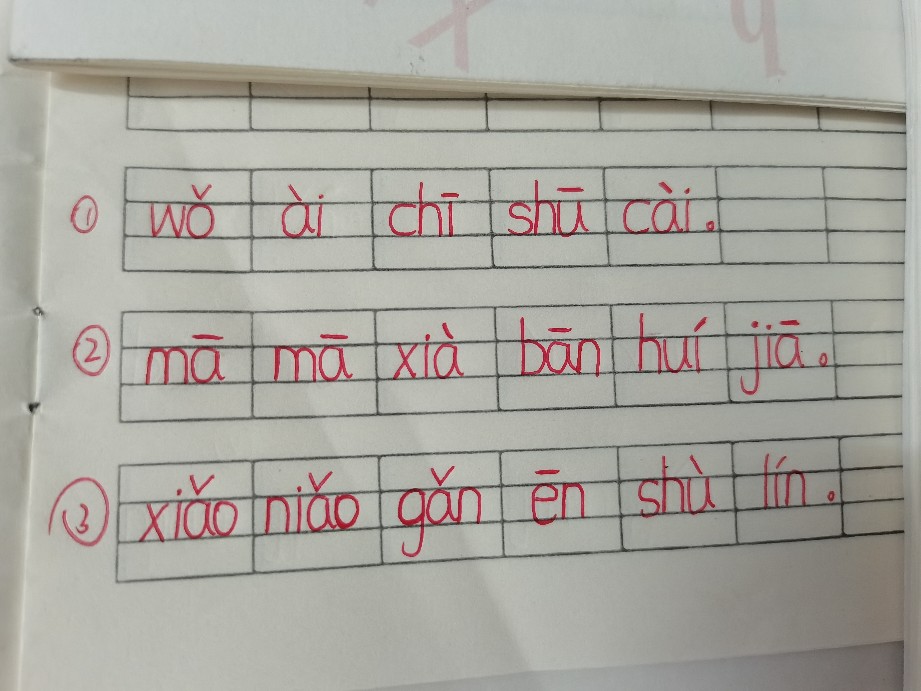 ① wǒ ài chī shū cài。
② mā mā xià bān huí jiā。
③ xiǎo niǎo gǎn ēn shù lín。